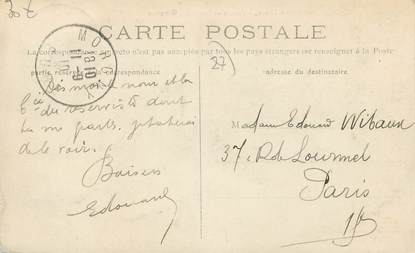 CARTE POSTALE
La correspondance au recto n'est pas acceptée par tous les pays étrangers (se renseigner à la Poste
partie réservée à la correspondance
adresse du destinataire
27
Dis moi le nom et la
Cie du réserviste dont
tu me parls.
de le voir.
Baisers
Edouard
Madame Edouard Wibaux
37, R de Lourmel
Paris